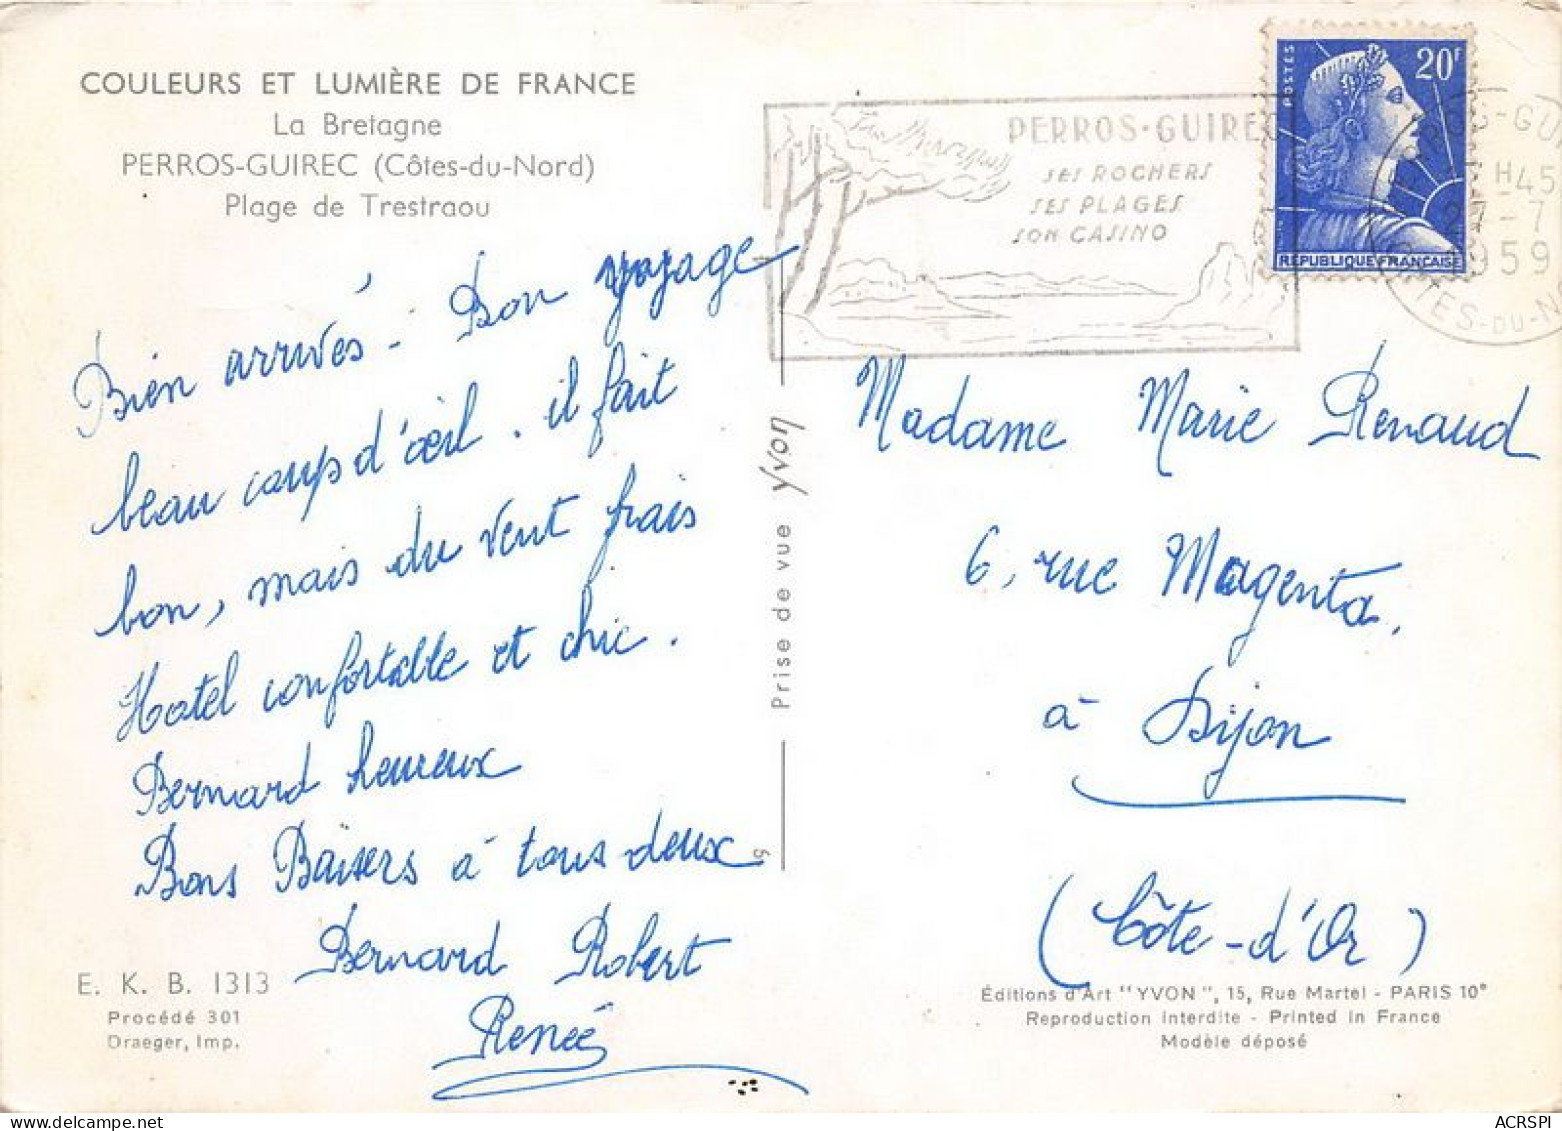 COULEURS ET LUMIÈRE DE FRANCE
La Bretagne
PERROS-GUIREC (Côtes-du-Nord)
Plage de Trestraou
Bien arrivés - Bon voyage
beau coup d'œil. il fait
bon, mais du vent frais
Hotel confortable et chic.
Bernard heureux
Bons Baisers à tous deux
Bernard Robert
Renée
E. K. B. 1313
Procédé 301
Draeger, Imp.
Prise de vue Yvon
PERROS-GUIREC
SES ROCHERS
SES PLAGES
SON CASINO
POSTES
20F
REPUBLIQUE FRANÇAISE
H45
27-7
1959
Madame Marie Renaud
6, rue Magenta,
à Dijon
(Côte-d'Or)
Éditions d'Art "YVON", 15, Rue Martel - PARIS 10e
Reproduction Interdite - Printed in France
Modèle déposé
ACRSPI